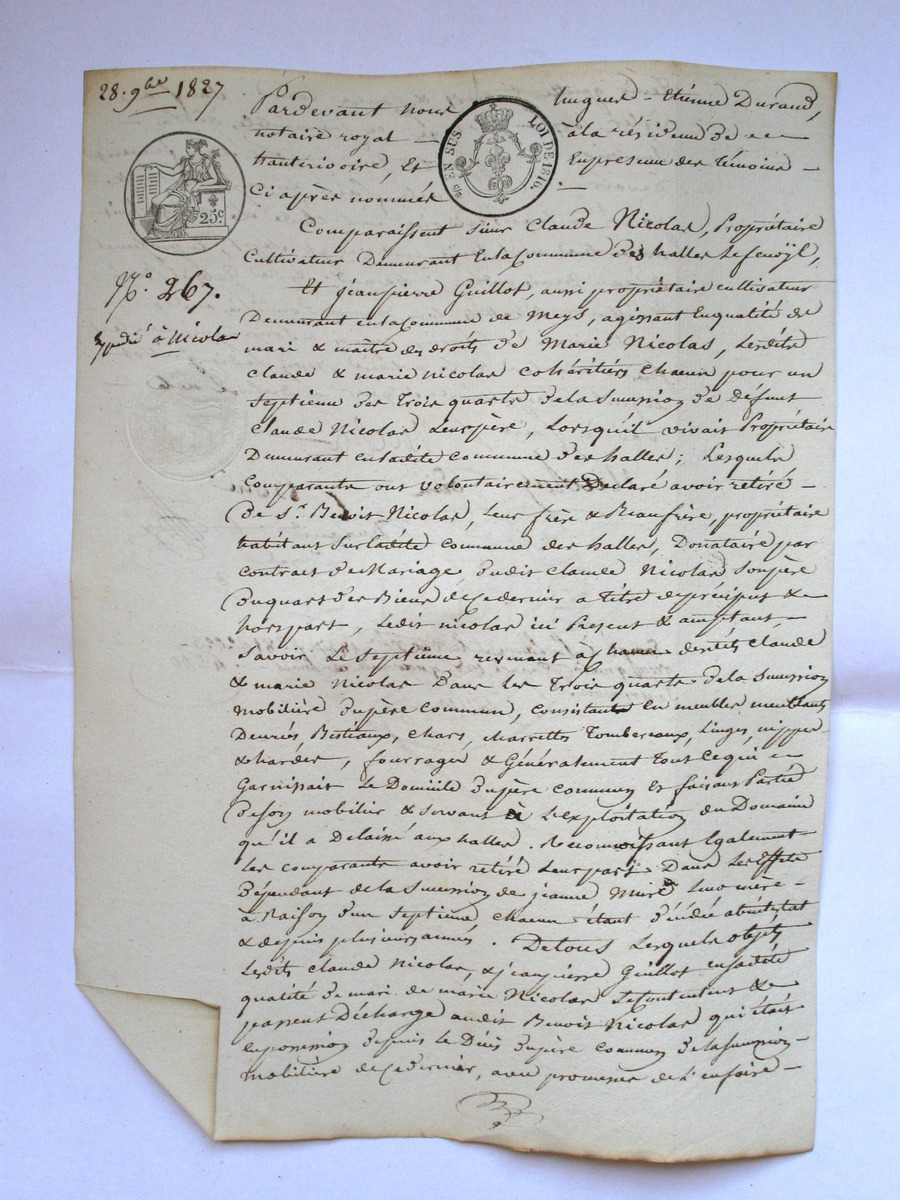 28. 9bre 1827
Pardevant nous hugues - Etienne Durand,
notaire royal à la résidence de
hauterivoire, Et En presence des témoins
Ci après nommés
EN SUS
LOI DE 1816.
25c.
Comparaissent sieur Claude Nicolas, Propriétaire
Cultivateur Demeurant En la Commune des halles Lefenoÿl,
N.º 267.
Expédié à Nicolas
Et jeanpierre Guillot, aussi propriétaire cultivateur
Demeurant en la Commune de Meys, agissant En qualité de
mari & maître des droits de Marie Nicolas, Lesdits
Claude & marie nicolas Cohéritiers Chacun pour un
Septième des Trois quarts de la Succession de Défunt
Claude Nicolas Leur père, Lorsqu'il vivait Propriétaire
Demeurant en ladite Commune des halles; Lesquels
Comparants ont volontairement Déclaré avoir retiré
De Sr. Benoit Nicolas, Leur frère & Beaufrère, propriétaire
habitant Sur ladite Commune des halles, Donataire par
Contract de Mariage dudit Claude Nicolas Son père
Du quart des Biens de Ce dernier a titre de préciput &
hors part, Ledit nicolas ici Present & acceptant,
Savoir Le Septième revenant à Chacun desdits Claude
& marie Nicolas Dans les Trois quarts de la Succession
mobilière du père Commun, Consistant En meubles meublants
Denrées, Bestiaux, Chars, Charrettes Tombereaux, Linges, nippes
& hardes, fourrages & Généralement Tout Ce qui
Garnissait Le Domicile du père Commun Et faisant Partie
De son mobilier & Servant à L'exploitation du Domaine
qu'il a Delaissé aux halles. Reconnoissant Egalement
les Comparants avoir retiré Leur part Dans Les Effets
Dépendant de la Succession de jeanne Leur mère
à Raison d'un Septième Chacun étant décédée abintestat
& depuis plusieurs années. De tous Lesquels objets
Lesdits Claude Nicolas, & jeanpierre Guillot en sadite
qualité De mari de marie Nicolas Se Contentent &
passent Décharge audit Benoit Nicolas qui était
En possession depuis le Décès du père Commun De la Succession
mobilière de Ce dernier, avec promesse de L'en faire